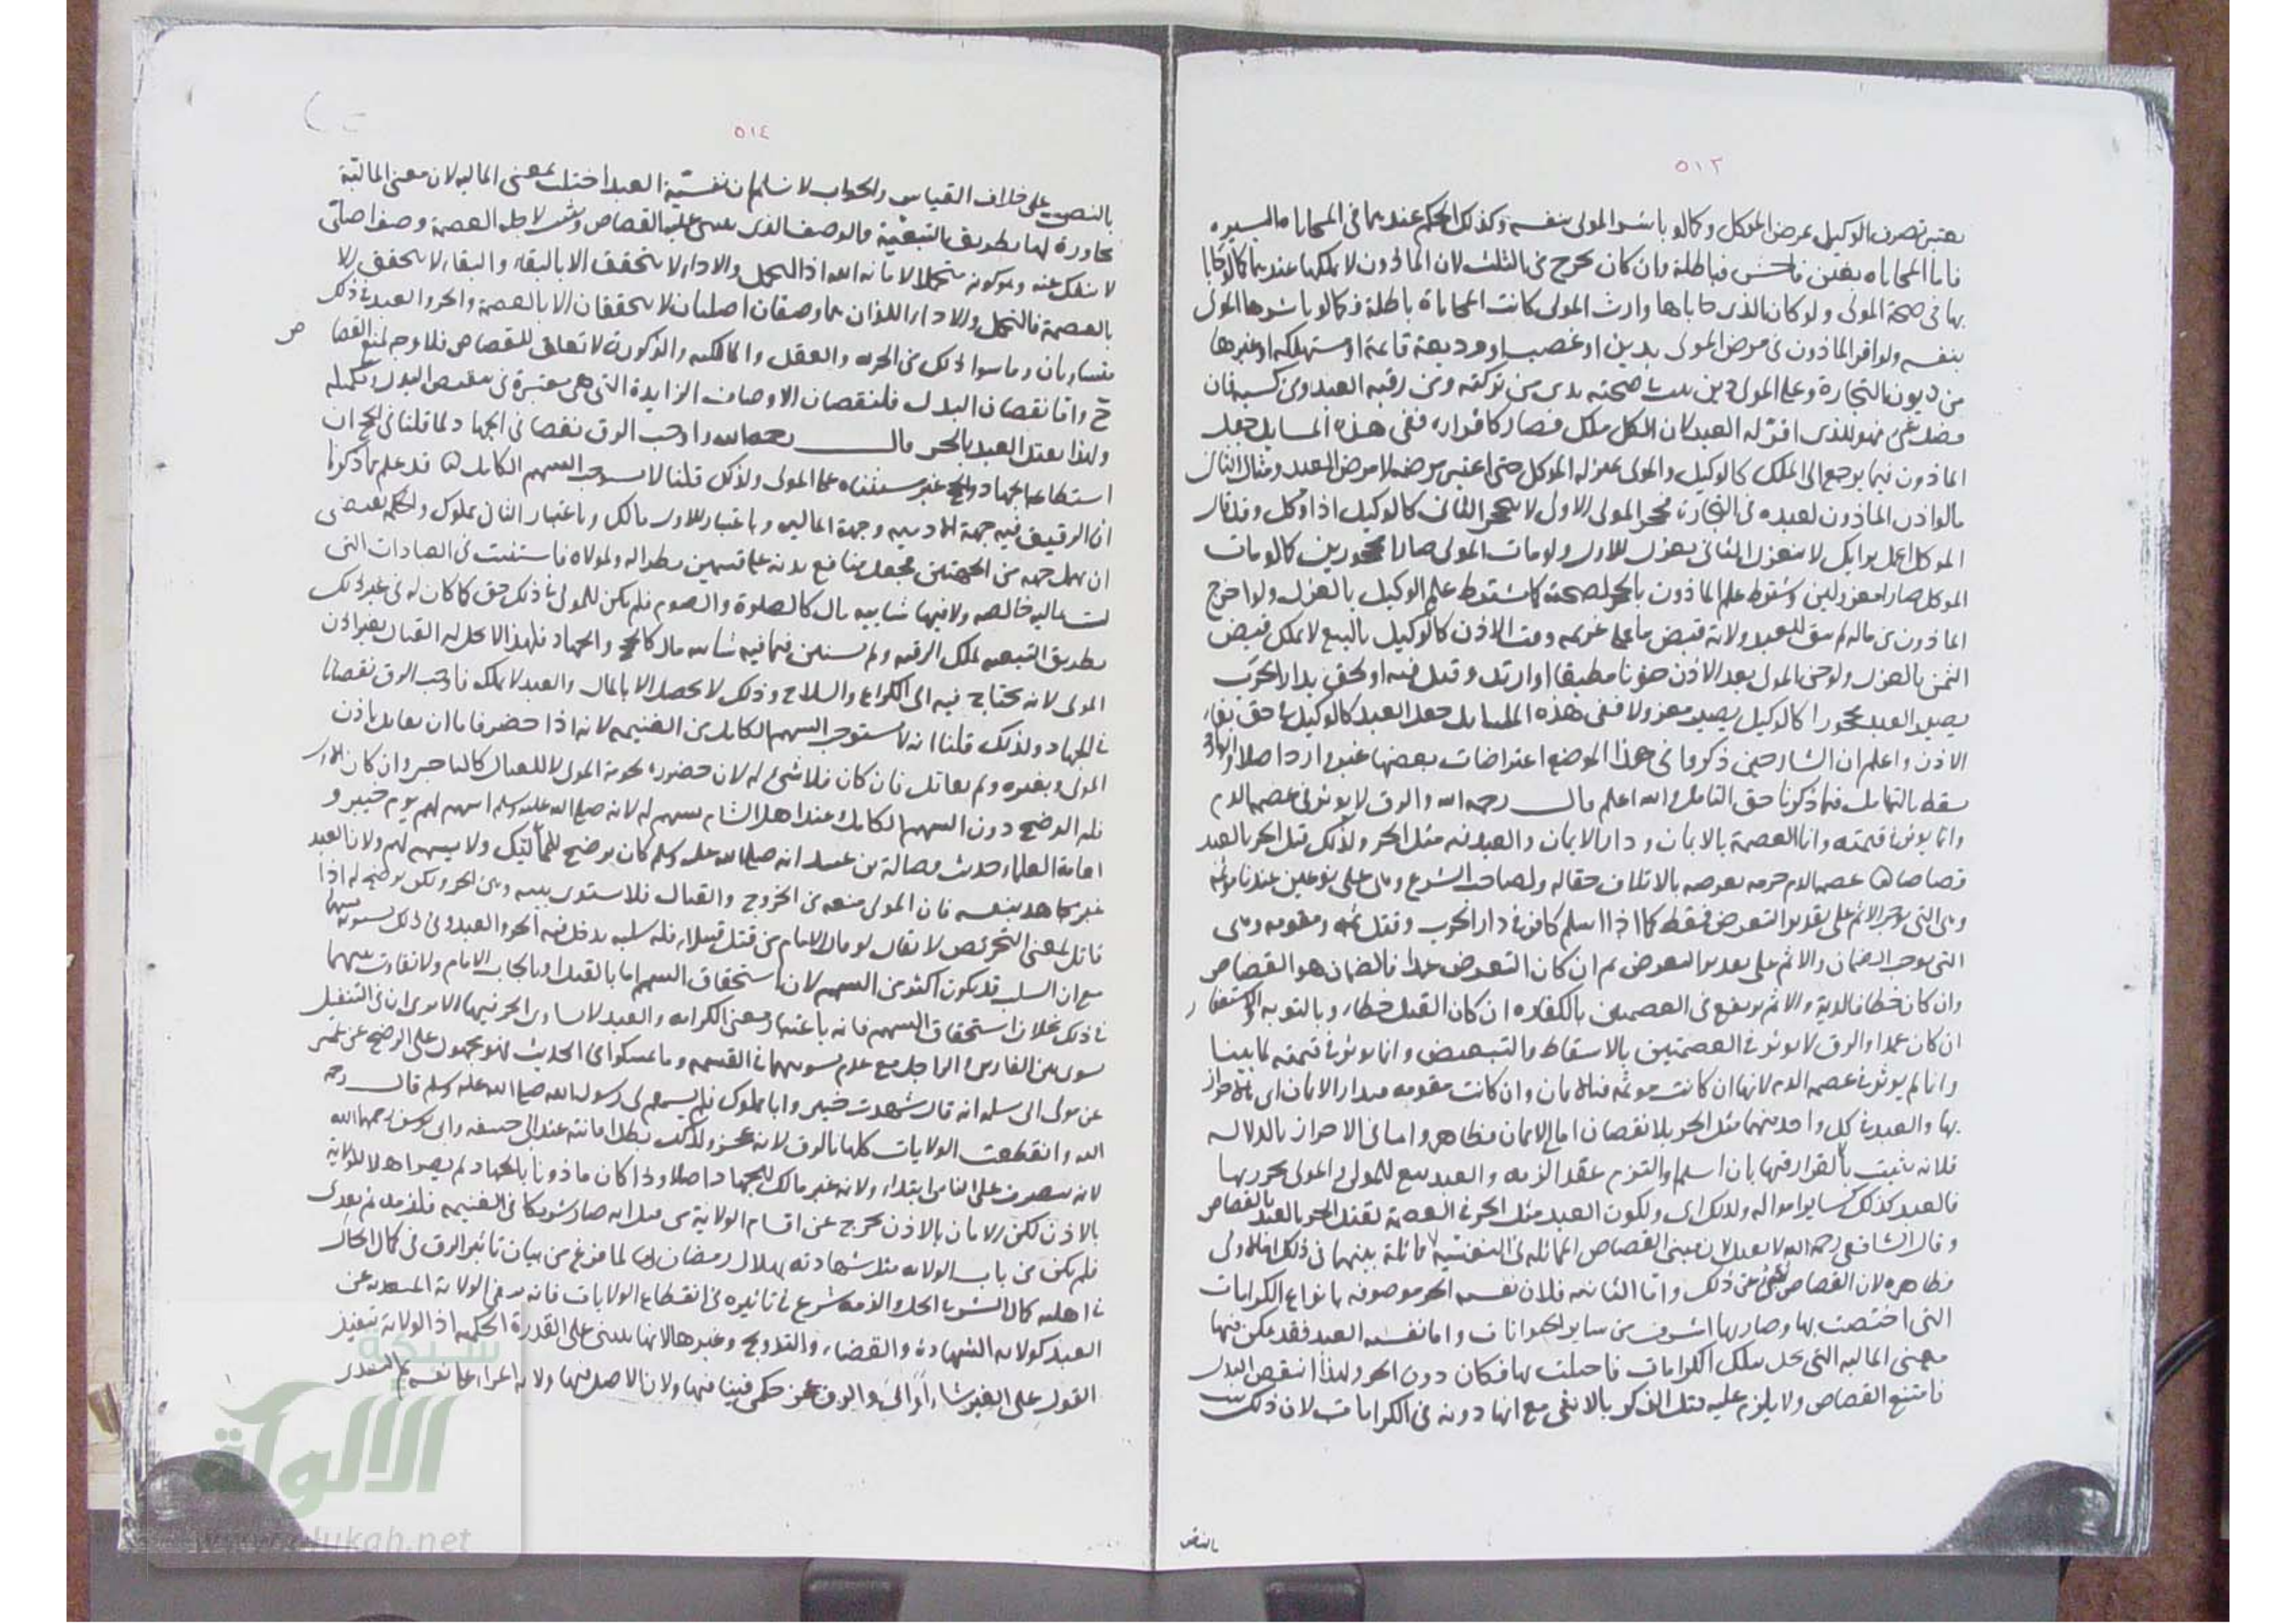 ٥١٣
يعتبر تصرف الوكيل بمرض الموكل وكما لو باشر المولى بنفسه وكذلك الحكم عندهما في المحاباة اليسيره
فاما المحاباه بغبن فاحش فباطلة وان كان يخرج من الثلث لان الماذون لا يملكها عندهما كما لو حابا
بها في صحة المولى ولو كان الذي حاباها وارث المولى كانت المحاباة باطلة كما لو باشرها المولى
بنفسه ولو اقر الماذون في مرض المولى بدين او غصب او وديعة قائمة او مستهلكه او غيرها
من ديون التجارة وعلى المولى دين صحته بدى من تركته ومن رقبه العبد ومن كسبه فان
فضل شي فهو للذي اقر له العبد لان الكل ملكه فصار كاقراره ففي هذه المسايل جعل
الماذون فيما يرجع الى الملك كالوكيل والمولى بمنزله الموكل حتى اعتبر مرضه لا مرض العبد ومثال الثاني
ما لو اذن الماذون لعبده في التجارة فحجر المولى الاول لا يحجر الثاني كالوكيل اذا وكل وقد قال
الموكل اعمل برايك لا ينعزل الثاني بعزل الاول ولو مات المولى صارا محجورين كما لو مات
الموكل صارا معزولين وشرط علم الماذون بالحجر لصحته كما شرط علم الوكيل بالعزل ولو اخرج
الماذون من ماله لم يبق للعبد ولاية قبض ما على غريمه وقت الاذن كالوكيل بالبيع لا يملك قبض
الثمن بالعزل ولو جن المولى بعد الاذن جنونا مطبقا او ارتد وقتل فيه او لحق بدار الحرب
يصير العبد محجورا كالوكيل يصير معزولا ففي هذه المسايل جعل العبد كالوكيل في حق بقاء
الاذن واعلم ان الشارحين ذكروا في هذا الموضع اعتراضات بعضها غير وارد اصلا والباقي
يسقط بالتامل فيما ذكرنا حق التامل والله اعلم قال رحمه الله والرق لا يؤثر في عصمة الدم
وانما يؤثر في قيمته وانما العصمة بالايمان ودار الايمان والعبد فيه مثل الحر ولذلك قتل الحر بالعبد
قصاصا عصمه الدم حرمه تعرضه بالاتلاف حقا له ولصاحب الشرع وهي على نوعين عندنا مؤثمة
وهي التي توجب الاثم على تقدير التعرض فقط كما اذا اسلم كافر في دار الحرب وقتل ثمه ومقومه وهي
التي توجب الضمان والاثم على تقدير التعرض ثم ان كان التعرض عمدا فالضمان هو القصاص
وان كان خطا فالدية والاثم يرتفع في العصمتين بالكفارة ان كان القتل خطاء وبالتوبه والاستغفار
ان كان عمدا والرق لا يؤثر في العصمتين بالاسقاط والتبعيض وانما يؤثر في قيمته لما بينا
وانما لم يؤثر في عصمه الدم لانها ان كانت مؤثمه فبالايمان وان كانت مقومه فبدار الايمان اي بالاحراز
بها والعبد في كل واحد منهما مثل الحر بلا نقصان اما في الايمان فظاهر واما في الاحراز بالدار
فلانه يثبت بالقرار فيها بان اسلم او التزم عقد الذمه والعبد تبع للمولى والمولى محرز بها
فالعبد كذلك كسائر امواله ولذلك اي ولكون العبد مثل الحر في العصمة يقتل الحر بالعبد بالقصاص
وقال الشافعي رحمه الله لا يقتل لان مبنى القصاص المماثله في النفسية ولا مماثلة بينهما في ذلك اما الاولى
فظاهره لان القصاص ينبئ عن ذلك واما الثانيه فلان نفس الحر موصوفه بانواع الكرامات
التي اختصت بها وصار بها اشرف من ساير الحيوانات واما نفس العبد فقد تمكن فيها
معنى الماليه التي تخل بتلك الكرامات فاختلت بها فكان دون الحر ولهذا انتقص البدل
فامتنع القصاص ولا يلزم عليه قتل الذكر بالانثى مع انها دونه في الكرامات لان ذلك ثبت
بالنص
٥١٤
بالنص على خلاف القياس والجواب لا نسلم ان نفسية العبد اختلت بمعنى الماليه لان معنى المالية
مجاورة لها بطريق التبعية والوصف الذي يبتنى عليه القصاص وشرع لاجله العصمة وصف اصلي
لا ينفك عنه وهو كونه متحملا لامانة الله اذ التحمل والاداء لا يتحقق الا بالبقاء والبقاء لا يتحقق الا
بالعصمة فالتحمل والاداء اللذان هما وصفان اصليان لا يتحققان الا بالعصمة والحر والعبد في ذلك
متساويان وما سوا ذلك من الحريه والعقل والمالكيه والذكورة لا تعلق للقصاص فلا وجه لمنع القصاص
ح واما نقصان البدل فلنقصان الاوصاف الزايدة التي هي معتبرة في تنقيص البدل وتكميله
ولهذا يقتل العبد بالحر قال رحمه الله واوجب الرق نقصا في الجهاد لما قلنا في الحج ان
استطاعة الجهاد والحج غير مستثناه على المولى ولذلك قلنا لا يستوجب السهم الكامل قد علم بما ذكرنا
ان الرقيق فيه جهة الادميه وجهة الماليه وباعتبار الاول مالك وباعتبار الثاني مملوك والحكم يقتضي
ان لا يهمل جهة من الجهتين فجعل منافع بدنه على قسمين نظرا له ولمولاه فاستثنيت في العبادات التي
ليست ماليه خالصه ولا فيها شائبة مال كالصلوة والصوم فلم يكن للمولى في ذلك حق كما كان له في غير ذلك
بطريق التبعيه لملك الرقبه ولم يستثن فيما فيه شائبه مال كالحج والجهاد فلهذا لا يحل له القتال بغير اذن
المولى لانه يحتاج فيه الى الكراع والسلاح وذلك لا يحصل الا بالمال والعبد لا يملكه فاوجب الرق نقصانا
في الجهاد ولذلك قلنا انه لا يستوجب السهم الكامل من الغنيمه لانه اذا حضر فاما ان يقاتل باذن
المولى وبغيره ولم يقاتل فان كان فلا شيء له لان حضوره لخدمة المولى لا للقتال كالتاجر وان كان الاول
فله الرضخ دون السهم الكامل وعند اهل الشام يسهم له لانه صلى الله عليه وسلم اسهم لهم يوم خيبر و
لعامة العلماء حديث فضالة بن عبيد انه صلى الله عليه وسلم كان يرضخ للمماليك ولا يسهم لهم ولان العبد
غير مجاهد بنفسه فان المولى منعه من الخروج والقتال فلا يستوي بينه وبين الحر ولكن يرضخ له اذا
قاتل لمعنى التحريض لا يقال لو قال الامام من قتل قتيلا فله سلبه يدخل فيه الحر والعبد وفي ذلك تسوية بينهما
مع ان السلب قد يكون اكثر من السهم لان استحقاق السهم اما بالقتل او بايجاب الامام ولا تفاوت بينهما
في ذلك بخلاف استحقاق السهم فانه باعتبار معنى الكرامه والعبد لا يساوي الحر فيها الا ترى ان في التنفيل
سوى بين الفارس والراجل مع عدم تسويتهما في القسمه وما تمسكوا من الحديث فهو محمول على الرضخ عن عمير
عن مولى ابى سلمه انه قال شهدت خيبر وانا مملوك فلم يسهم لي رسول الله صلى الله عليه وسلم قال رحمه
الله وانقطعت الولايات كلها بالرق لانه عجز ولذلك بطل امانه عند ابي حنيفه وابي يوسف رحمهما الله
لانه يتصرف على الناس ابتداء ولانه غير مالك للجهاد اصلا واذا كان ماذونا بالجهاد لم يصر اهلا للولاية
بالاذن لكن الامان بالاذن يخرج عن اقسام الولاية من قبل انه صار شريكا في الغنيمه فلزمه ثم تعدى
فلم يكن من باب الولايه مثل شهادته بهلال رمضان لما فرغ من بيان تاثير الرق في كمال الحال
في اهليه الحل والذمه شرع في تاثيره في انقطاع الولايات فانه ينفي الولاية المتعديه عن
العبد كولايه الشهادة والقضاء والتزويج وغيرها لانها تبتنى على القدرة الحكميه اذ الولاية تنفيذ
القول على الغير شاء او ابى والرق عجز حكمي فينافيها ولان الاصل فيها ولاية المرء على نفسه ثم التعدي
شبكة
الألوكة
www.alukah.net